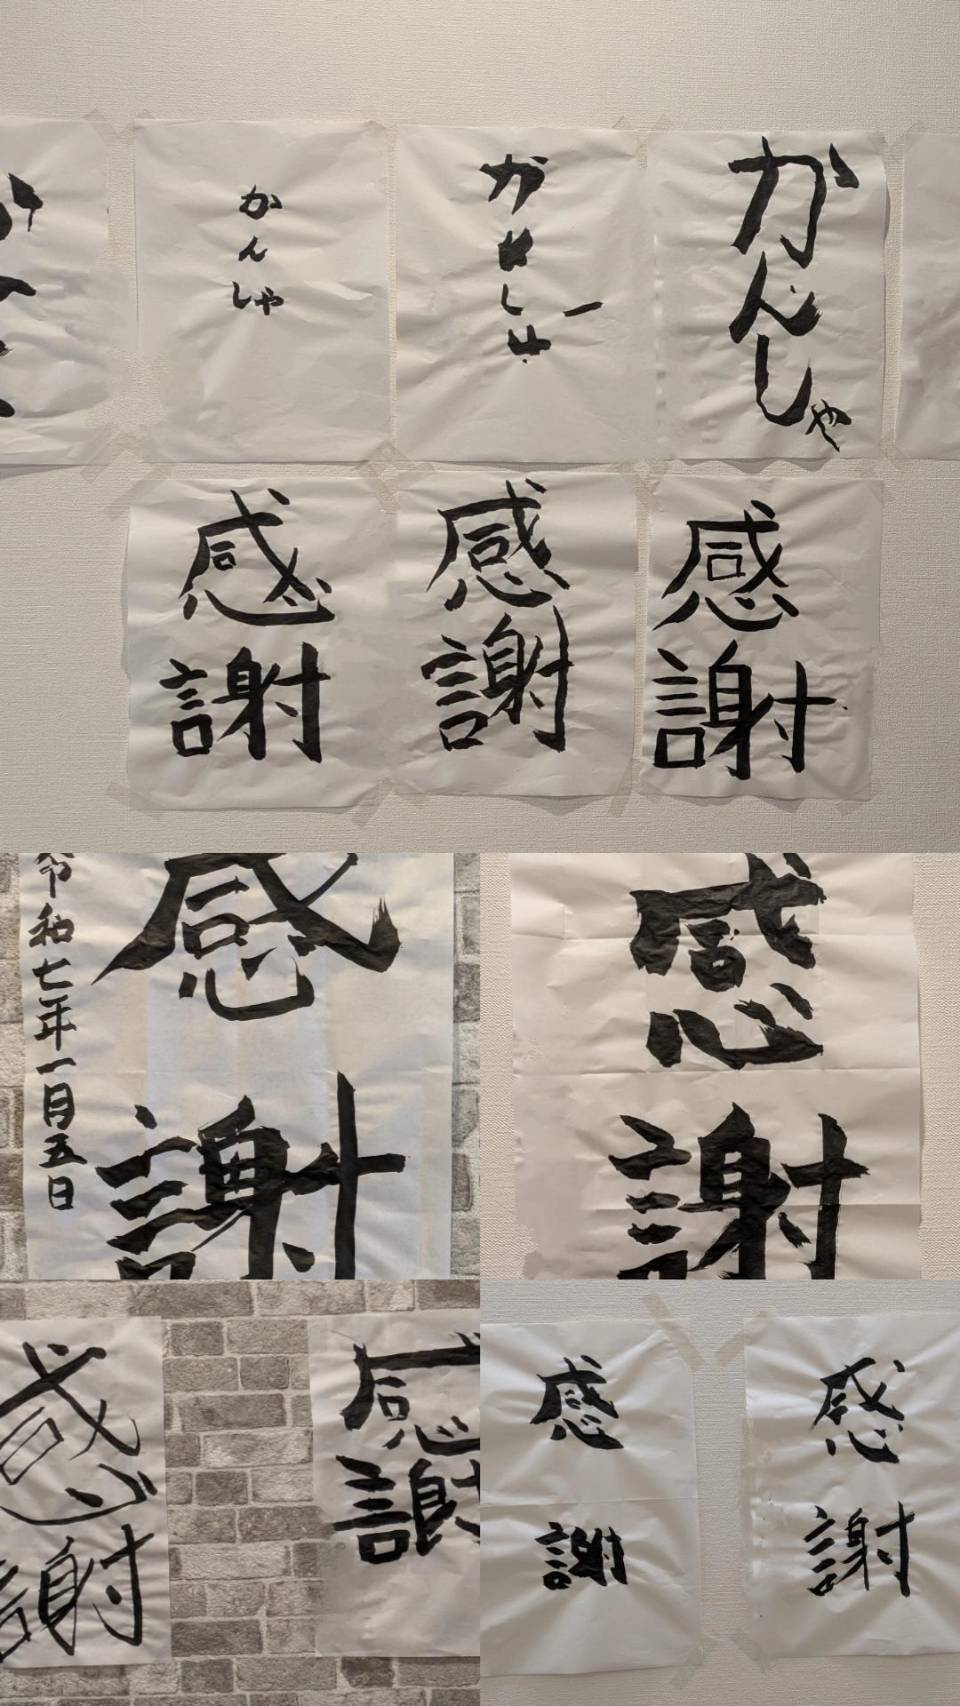 か
ん
しゃ
か
ん
し
ゃ
か
ん
し
ゃ
感
謝
感
謝
感
謝
感
謝
令和七年一月五日
感
謝
感
謝
感
謝
感
謝
感
謝